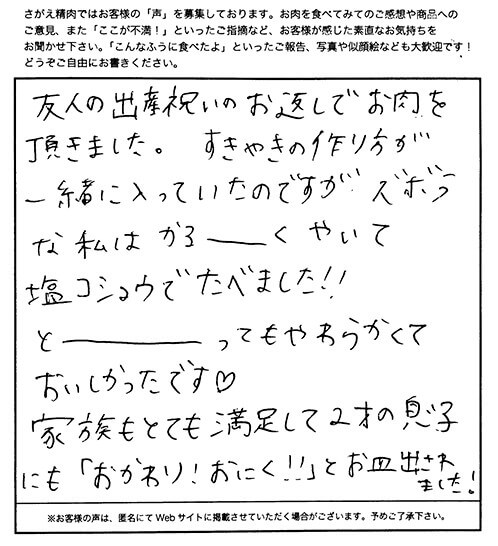 さがえ精肉ではお客様の「声」を募集しております。お肉を食べてみてのご感想や商品への
ご意見、また「ここが不満！」といったご指摘など、お客様が感じた素直なお気持ちを
お聞かせ下さい。「こんなふうに食べたよ」といったご報告、写真や似顔絵なども大歓迎です！
どうぞご自由にお書きください。
友人の出産祝いのお返しでお肉を
頂きました。すきやきの作り方が
一緒に入っていたのですがズボラ
な私はかる――くやいて
塩コショウでたべました!!
と――――ってもやわらかくて
おいしかったです♡
家族もとても満足して2才の息子
にも「おかわり！おにく!!」とお皿出され
ました！
※お客様の声は、匿名にてWebサイトに掲載させていただく場合がございます。予めご了承下さい。